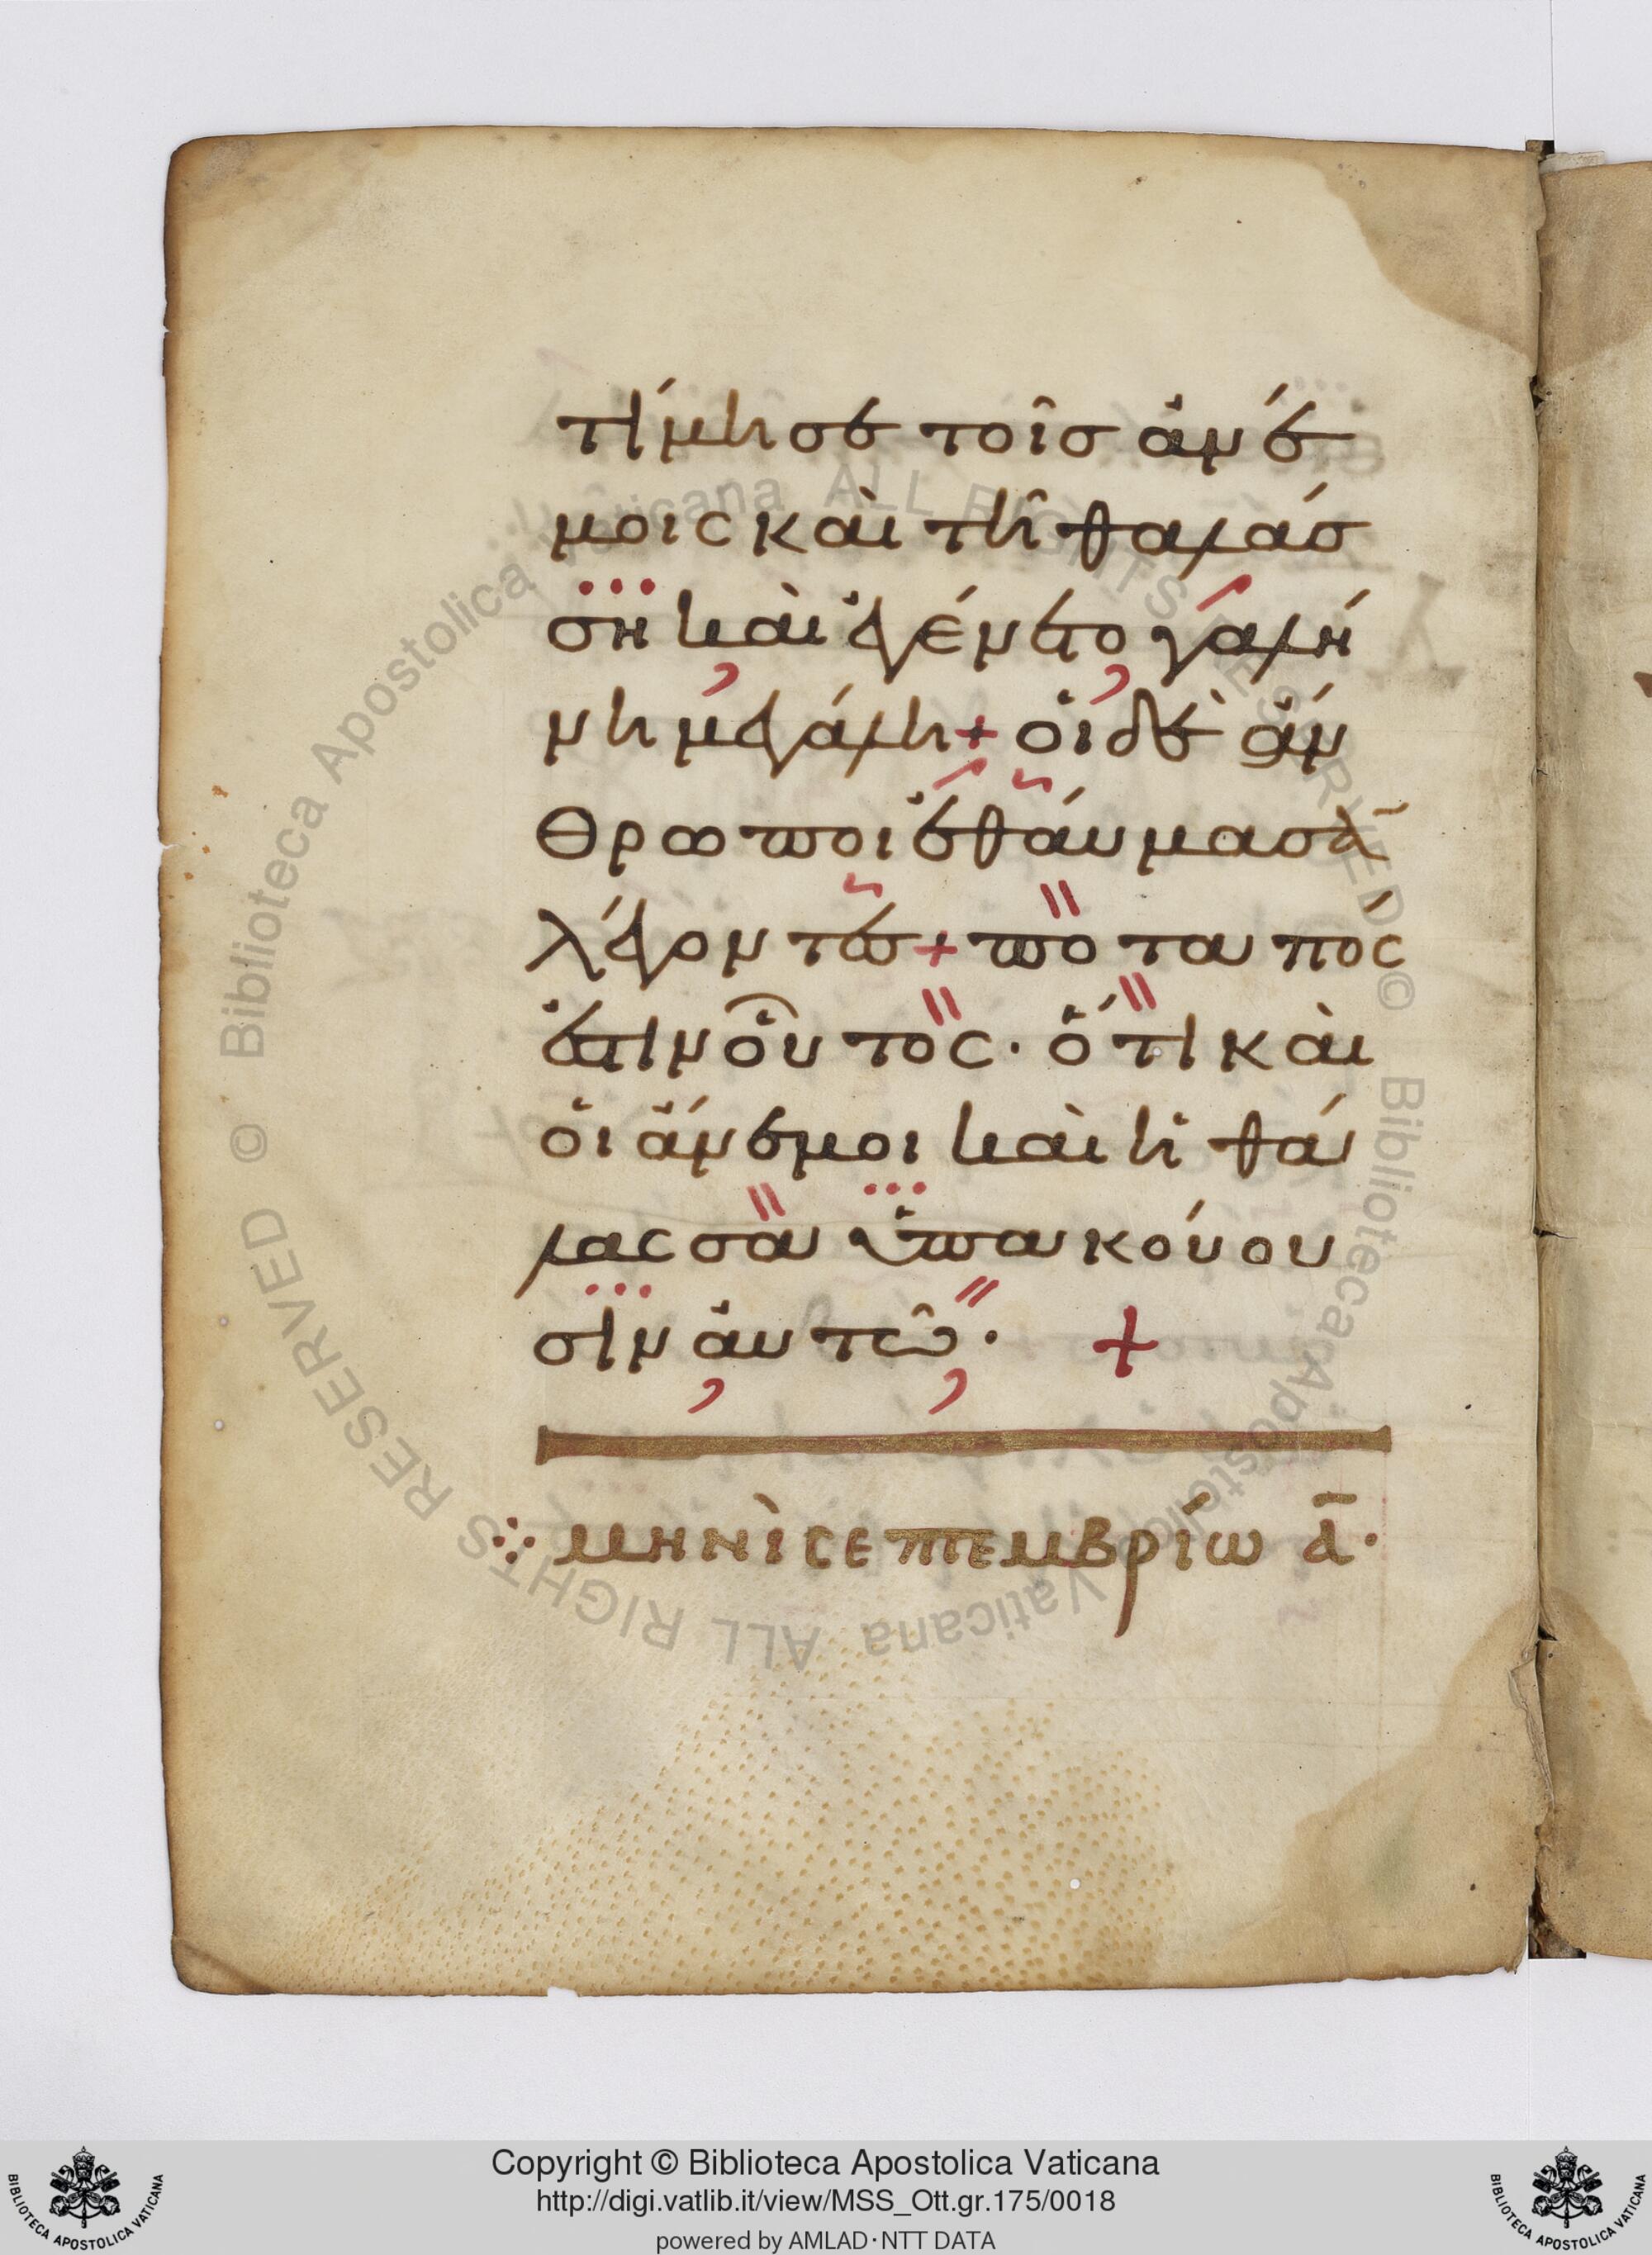 τίμησε τοῖσ ἀνέ
μοις καὶ τῆ θαλάσ
ση καὶ ἐγένετο γαλή
νη μεγάλη + οἱ δὲ ἄν
θρωποι ἐθάυμασᾱ
λέγοντεσ + ποταπός
ἐστιν οὗτος· ὅτι καὶ
οἱ ἄνεμοι καὶ ἡ θά
λασσα ὑπακούου
σιν ἀυτῶ· +
⁘ ΜΗΝῚ ϹΕΠΤΕΜΒΡΊΩ Ᾱ·
Biblioteca Apostolica Vaticana ALL RIGHTS RESERVED © Biblioteca Apostolica Vaticana ALL RIGHTS RESERVED ©
Copyright © Biblioteca Apostolica Vaticana
http://digi.vatlib.it/view/MSS_Ott.gr.175/0018
powered by AMLAD·NTT DATA
BIBLIOTECA APOSTOLICA VATICANA
BIBLIOTECA APOSTOLICA VATICANA